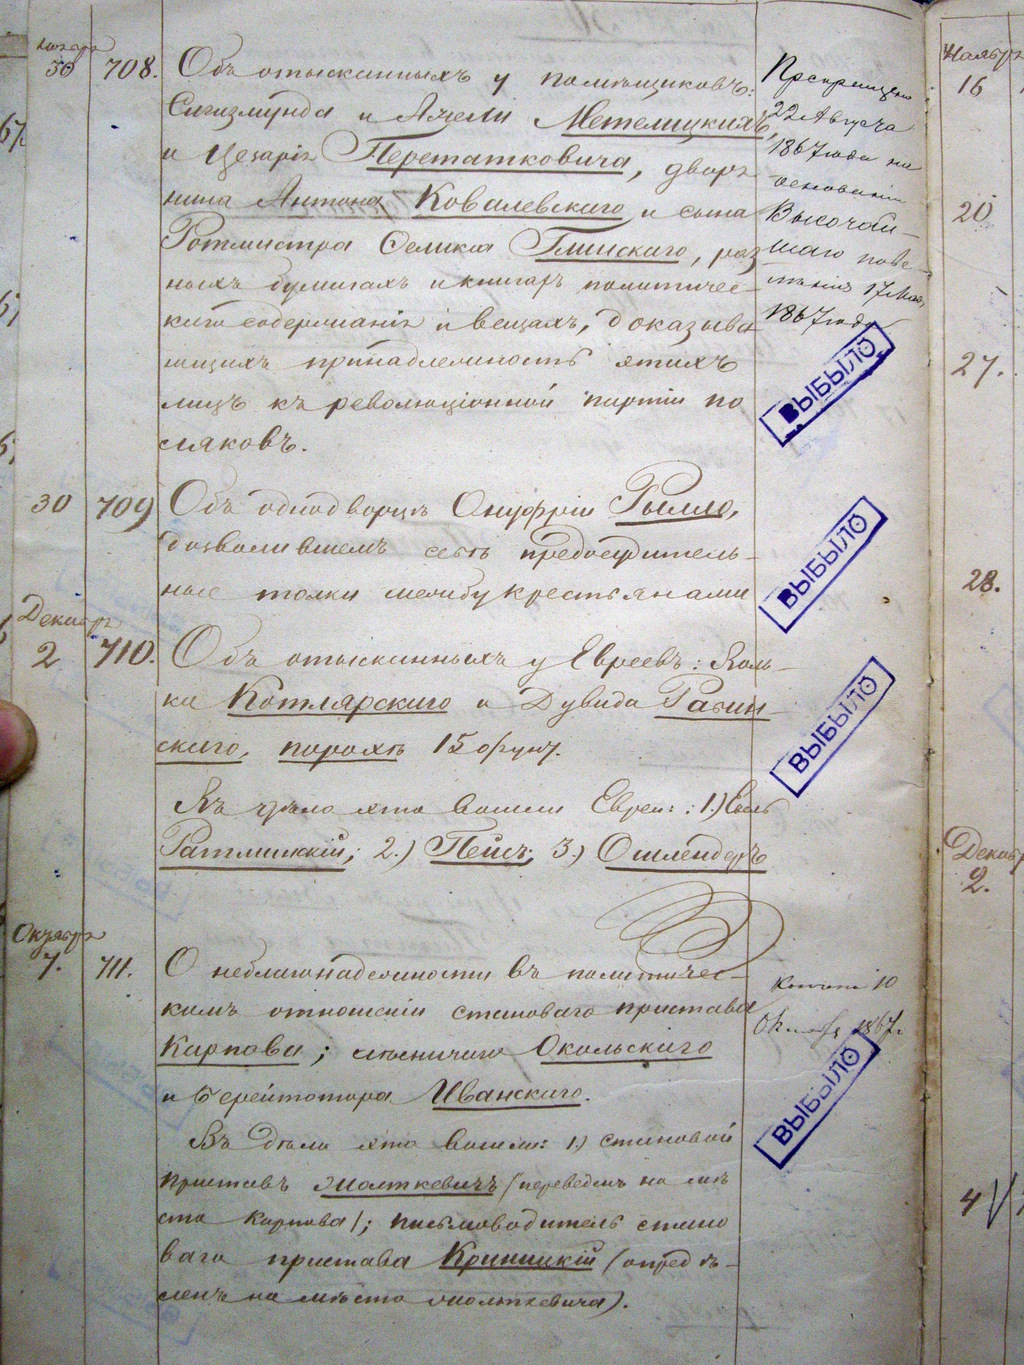 30 708. Объ отысканныхъ у помѣщиковъ:
Сигизмунда и Адели Метелицкихъ,
и Цезарія Перетатковича, дворя
нина Антона Ковалевскаго и сына
Ротмистра Феликса Глинскаго, раз
ныхъ бумагахъ и книгахъ политичес-
каго содержанія и вещахъ, доказыва
ющихъ принадлежность этихъ
лицъ къ революціонной партіи по
ляковъ.
Прекращено
22 Августа
1867 года на
основаніи
Высочай-
шаго пове-
лѣнія 17 Мая
1867 года
ВЫБЫЛО
30 709 Объ однодворцѣ Онуфріи Рылло,
дозволившемъ себѣ предосудитель-
ные толки между крестьянами
ВЫБЫЛО
Декабря
2 710. Объ отысканныхъ у Евреевъ:
Котлярскаго и Дувида Рабин-
скаго, порохѣ 15 фун.
Въ дѣло это вошли Евреи: 1.)
2.) Пейсъ; 3.) Ошлендеръ
ВЫБЫЛО
Октября
7. 711. О неблагонадежности въ политичес-
комъ отношеніи становаго пристава
Карпова; лѣсничаго Окольскаго
и берейтора Иванскаго.
Въ дѣло это вошли: 1.) становой
приставъ Жолткевичъ (переведенъ на мѣ
сто Карпова); письмоводитель стано
ваго пристава Криницкій (опредѣ-
ленъ на мѣсто Жолткевича).
10
1867 г.
ВЫБЫЛО
Ноябрь
16
20
27.
28.
Декабрь
2.
4